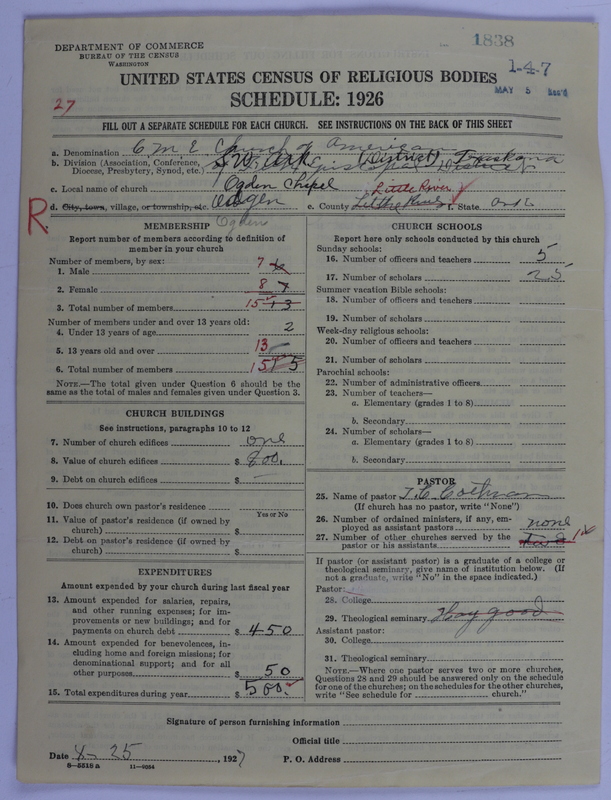 1838
DEPARTMENT OF COMMERCE
BUREAU OF THE CENSUS
WASHINGTON
1-47
MAY 5 Rec'd
UNITED STATES CENSUS OF RELIGIOUS BODIES
27
SCHEDULE: 1926
FILL OUT A SEPARATE SCHEDULE FOR EACH CHURCH. SEE INSTRUCTIONS ON THE BACK OF THIS SHEET
a. Denomination C M E Church of America
b. Division (Association, Conference, Diocese, Presbytery, Synod, etc.) S.W. Ark. (District) Texarkana
c. Local name of church Ogden Chapel
Little River
R
d. City, town, village, or township, etc. Ogden e. County Little River f. State Ark
Ogden
MEMBERSHIP
Report number of members according to definition of member in your church
Number of members, by sex:
1. Male 7
2. Female 8 7
3. Total number of members 15 13
Number of members under and over 13 years old:
4. Under 13 years of age 2
5. 13 years old and over 13
6. Total number of members 15
NOTE.—The total given under Question 6 should be the same as the total of males and females given under Question 3.
CHURCH BUILDINGS
See instructions, paragraphs 10 to 12
7. Number of church edifices one
8. Value of church edifices $ 800.
9. Debt on church edifices $
10. Does church own pastor's residence
Yes or No
11. Value of pastor's residence (if owned by church) $
12. Debt on pastor's residence (if owned by church) $
EXPENDITURES
Amount expended by your church during last fiscal year
13. Amount expended for salaries, repairs, and other running expenses; for improvements or new buildings; and for payments on church debt $ 450
14. Amount expended for benevolences, including home and foreign missions; for denominational support; and for all other purposes $ 50
15. Total expenditures during year $ 500.
CHURCH SCHOOLS
Report here only schools conducted by this church
Sunday schools:
16. Number of officers and teachers 5
17. Number of scholars 25
Summer vacation Bible schools:
18. Number of officers and teachers
19. Number of scholars
Week-day religious schools:
20. Number of officers and teachers
21. Number of scholars
Parochial schools:
22. Number of administrative officers
23. Number of teachers—
a. Elementary (grades 1 to 8)
b. Secondary
24. Number of scholars—
a. Elementary (grades 1 to 8)
b. Secondary
PASTOR
25. Name of pastor
(If church has no pastor, write "None")
26. Number of ordained ministers, if any, employed as assistant pastors none
27. Number of other churches served by the pastor or his assistants
If pastor (or assistant pastor) is a graduate of a college or theological seminary, give name of institution below. (If not a graduate, write "No" in the space indicated.)
Pastor:
28. College
29. Theological seminary Haygood
Assistant pastor:
30. College
31. Theological seminary
NOTE.—Where one pastor serves two or more churches, Questions 28 and 29 should be answered only on the schedule for one of the churches; on the schedules for the other churches, write "See schedule for church."
Signature of person furnishing information
Official title
Date 25, 1927 P. O. Address
8—5518 a 11—9034